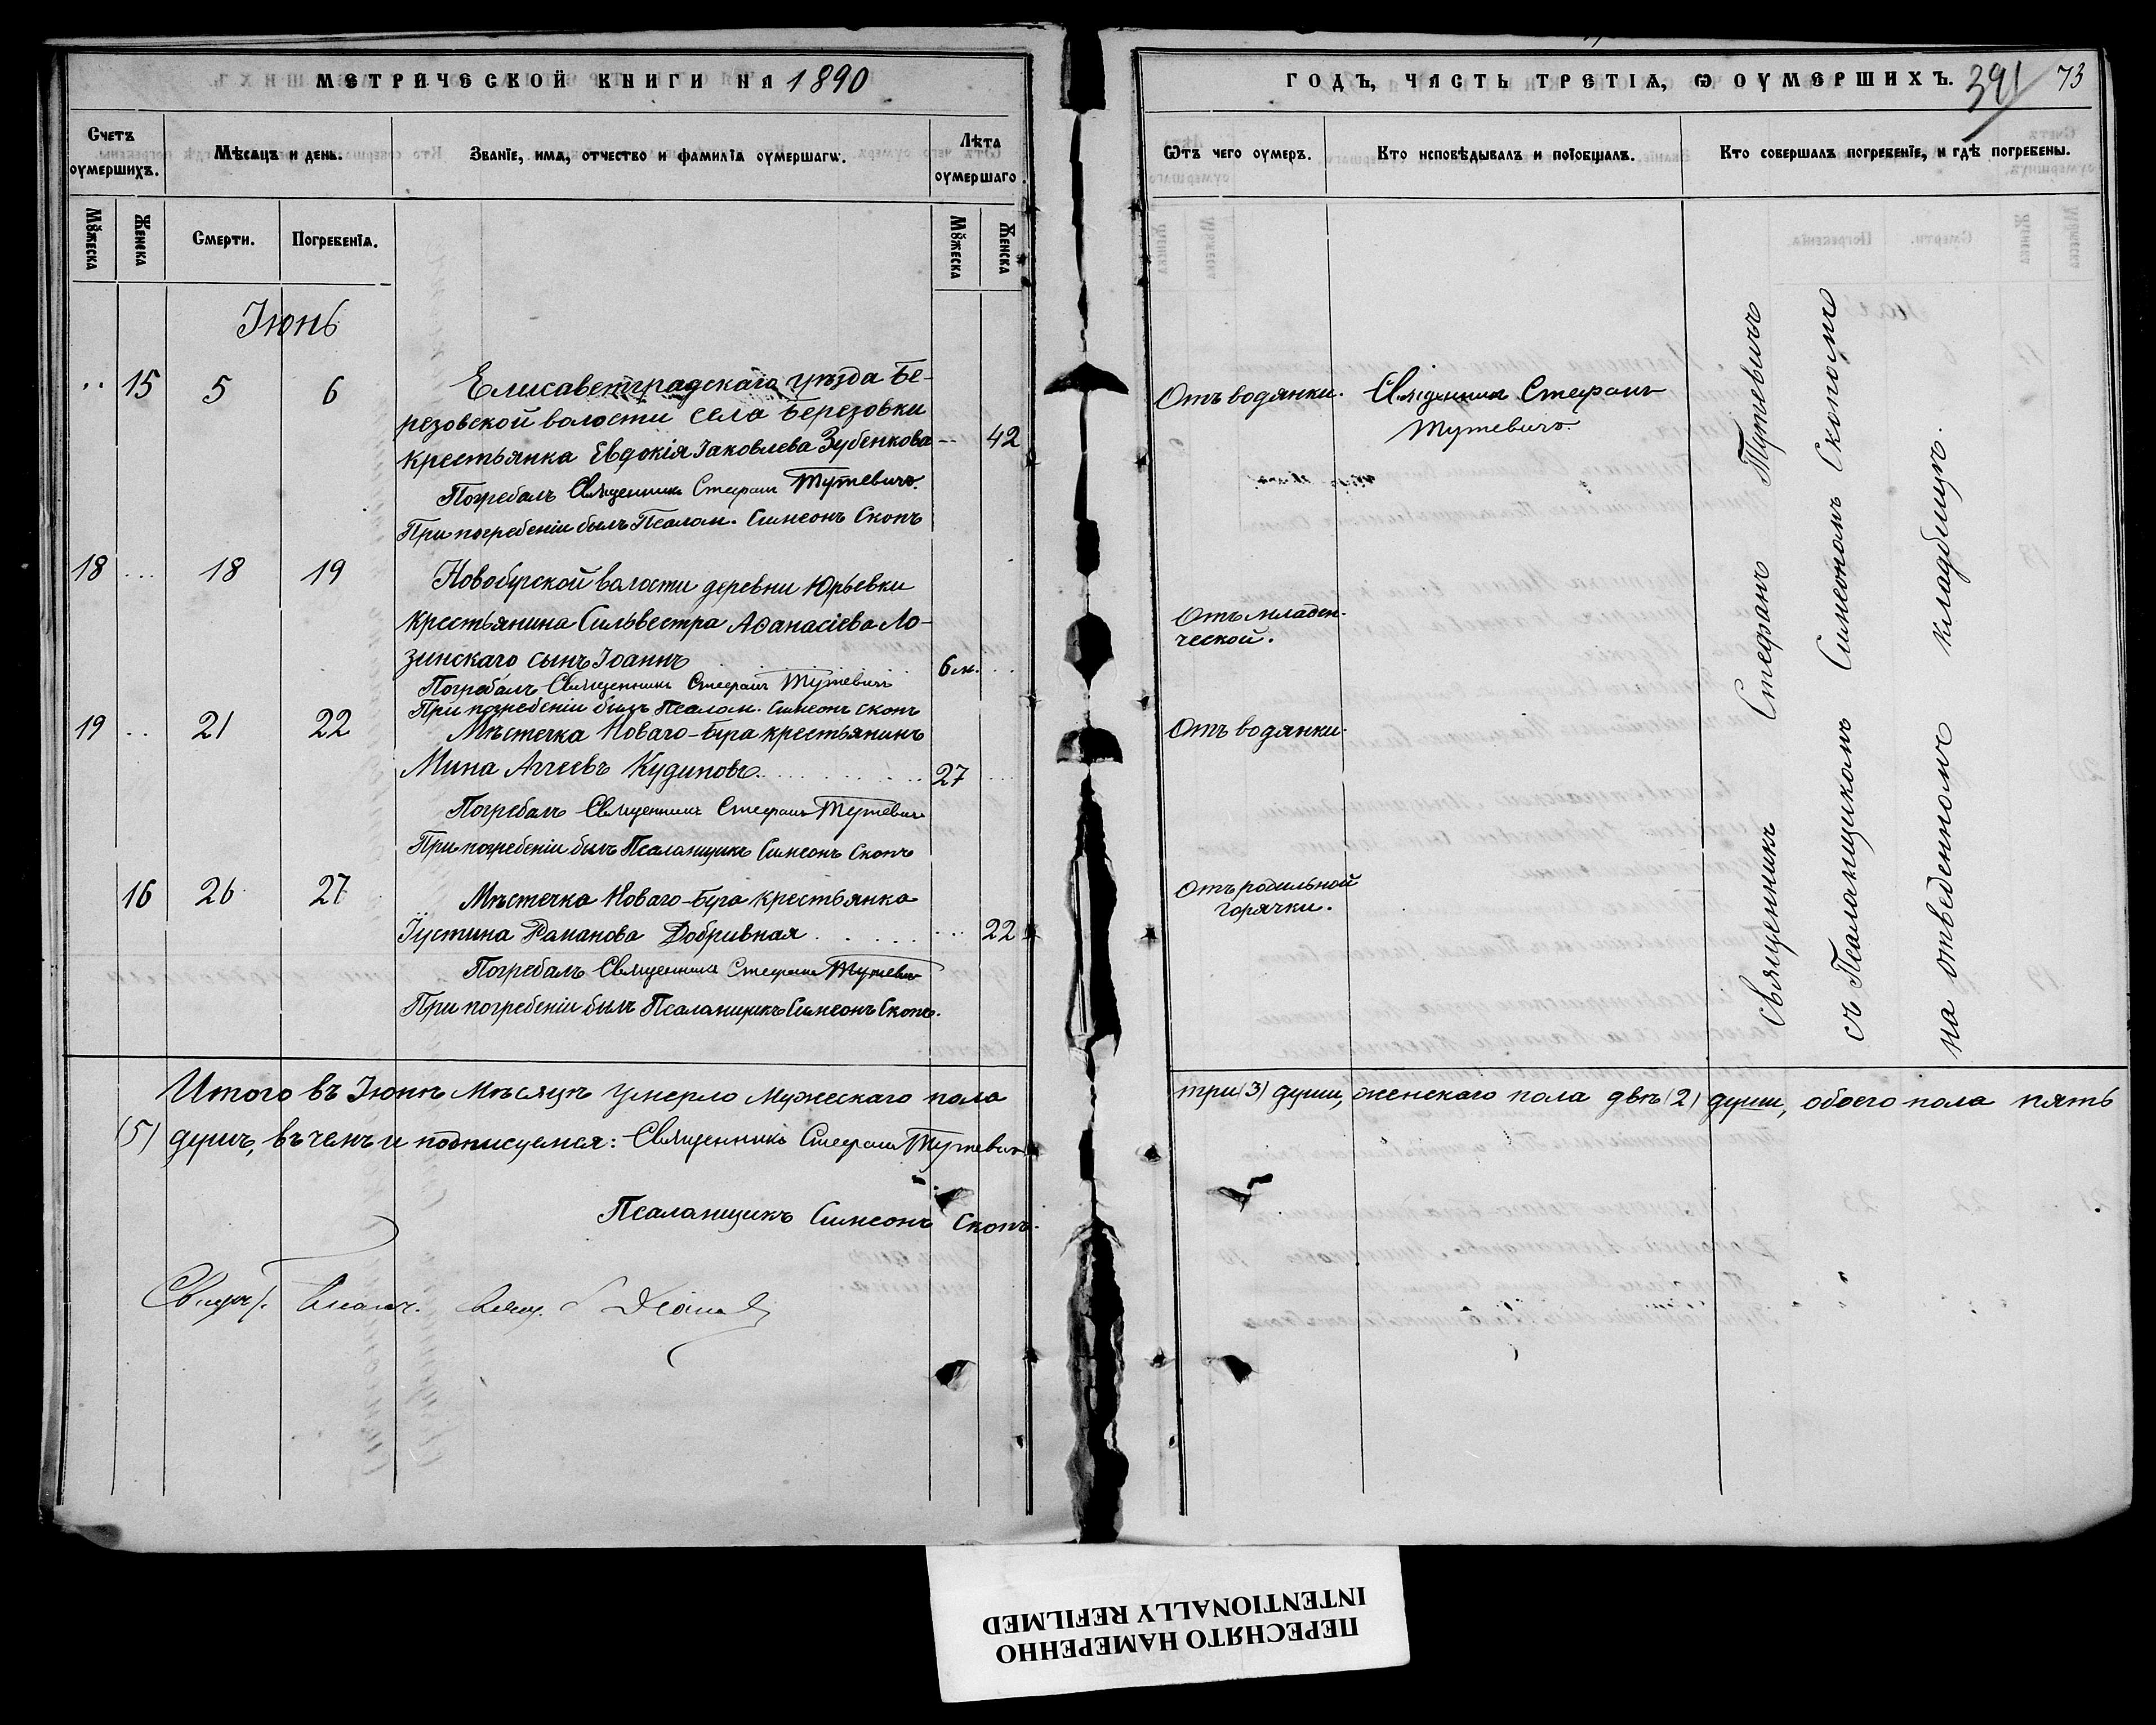 МЕТРИЧЕСКОЙ КНИГИ НА 1890
Счетъ оумершихъ.
Мѣсяцъ и день.
Званїе, имѧ, отчество и фамилїѧ оумершагѡ.
Лѣта оумершаго
Мꙋжеска
Женска
Смерти.
Погребенїѧ.
Мꙋжеска
Женска
Іюнь
15 5 6 Елисаветградскаго уѣзда Бе-
резовской волости села Березовки
крестьянка Евдокія Іаковлева Зубенкова 42
Погребалъ Священникъ Стефанъ Тутевичъ.
При погребеніи былъ Псалом. Симеонъ Скопъ
18 ... 18 19 Новобугской волости деревни Юрьевки
крестьянина Сильвестра Аѳанасіева Ло-
зинскаго сынъ Іоаннъ 6 м.
Погребалъ Священникъ Стефанъ Тутевичъ
При погребеніи былъ Псалом. Симеонъ Скопъ
19 .. 21 22 Мѣстечка Новаго-Буга крестьянинъ
Мина Аггеевъ Кудиновъ. 27
Погребалъ Священникъ Стефанъ Тутевичъ
При погребеніи былъ Псаломщикъ Симеонъ Скопъ
16 26 27 Мѣстечка Новаго-Буга крестьянка
Іустина Романова Добривная 22
Погребалъ Священникъ Стефанъ Тутевичъ
При погребеніи былъ Псаломщикъ Симеонъ Скопъ.
Итого въ Іюнѣ мѣсяцѣ умерло мужескаго пола
(5) душъ, въ чемъ и подписуемся: Священникъ Стефанъ Тутевичъ
Псаломщикъ Симеонъ Скопъ.
ГОДЪ, ЧАСТЬ ТРЕТІѦ, Ѡ ОУМЕРШИХЪ. 391 73
Ѿтъ чего оумеръ.
Кто исповѣдывалъ и поїобщалъ.
Кто совершалъ погребенїе, и гдѣ погребены.
Отъ водянки. Священникъ Стефанъ
Тутевичъ.
Отъ младен-
ческой.
Отъ водянки.
Отъ родильной
горячки.
Священникъ Стефанъ Тутевичъ
съ Псаломщикомъ Симеономъ Скопомъ
на отведенномъ кладбищѣ.
три (3) души, женскаго пола двѣ (2) души, обоего пола пять
ПЕРЕСНЯТО НАМЕРЕННО
INTENTIONALLY REFILMED